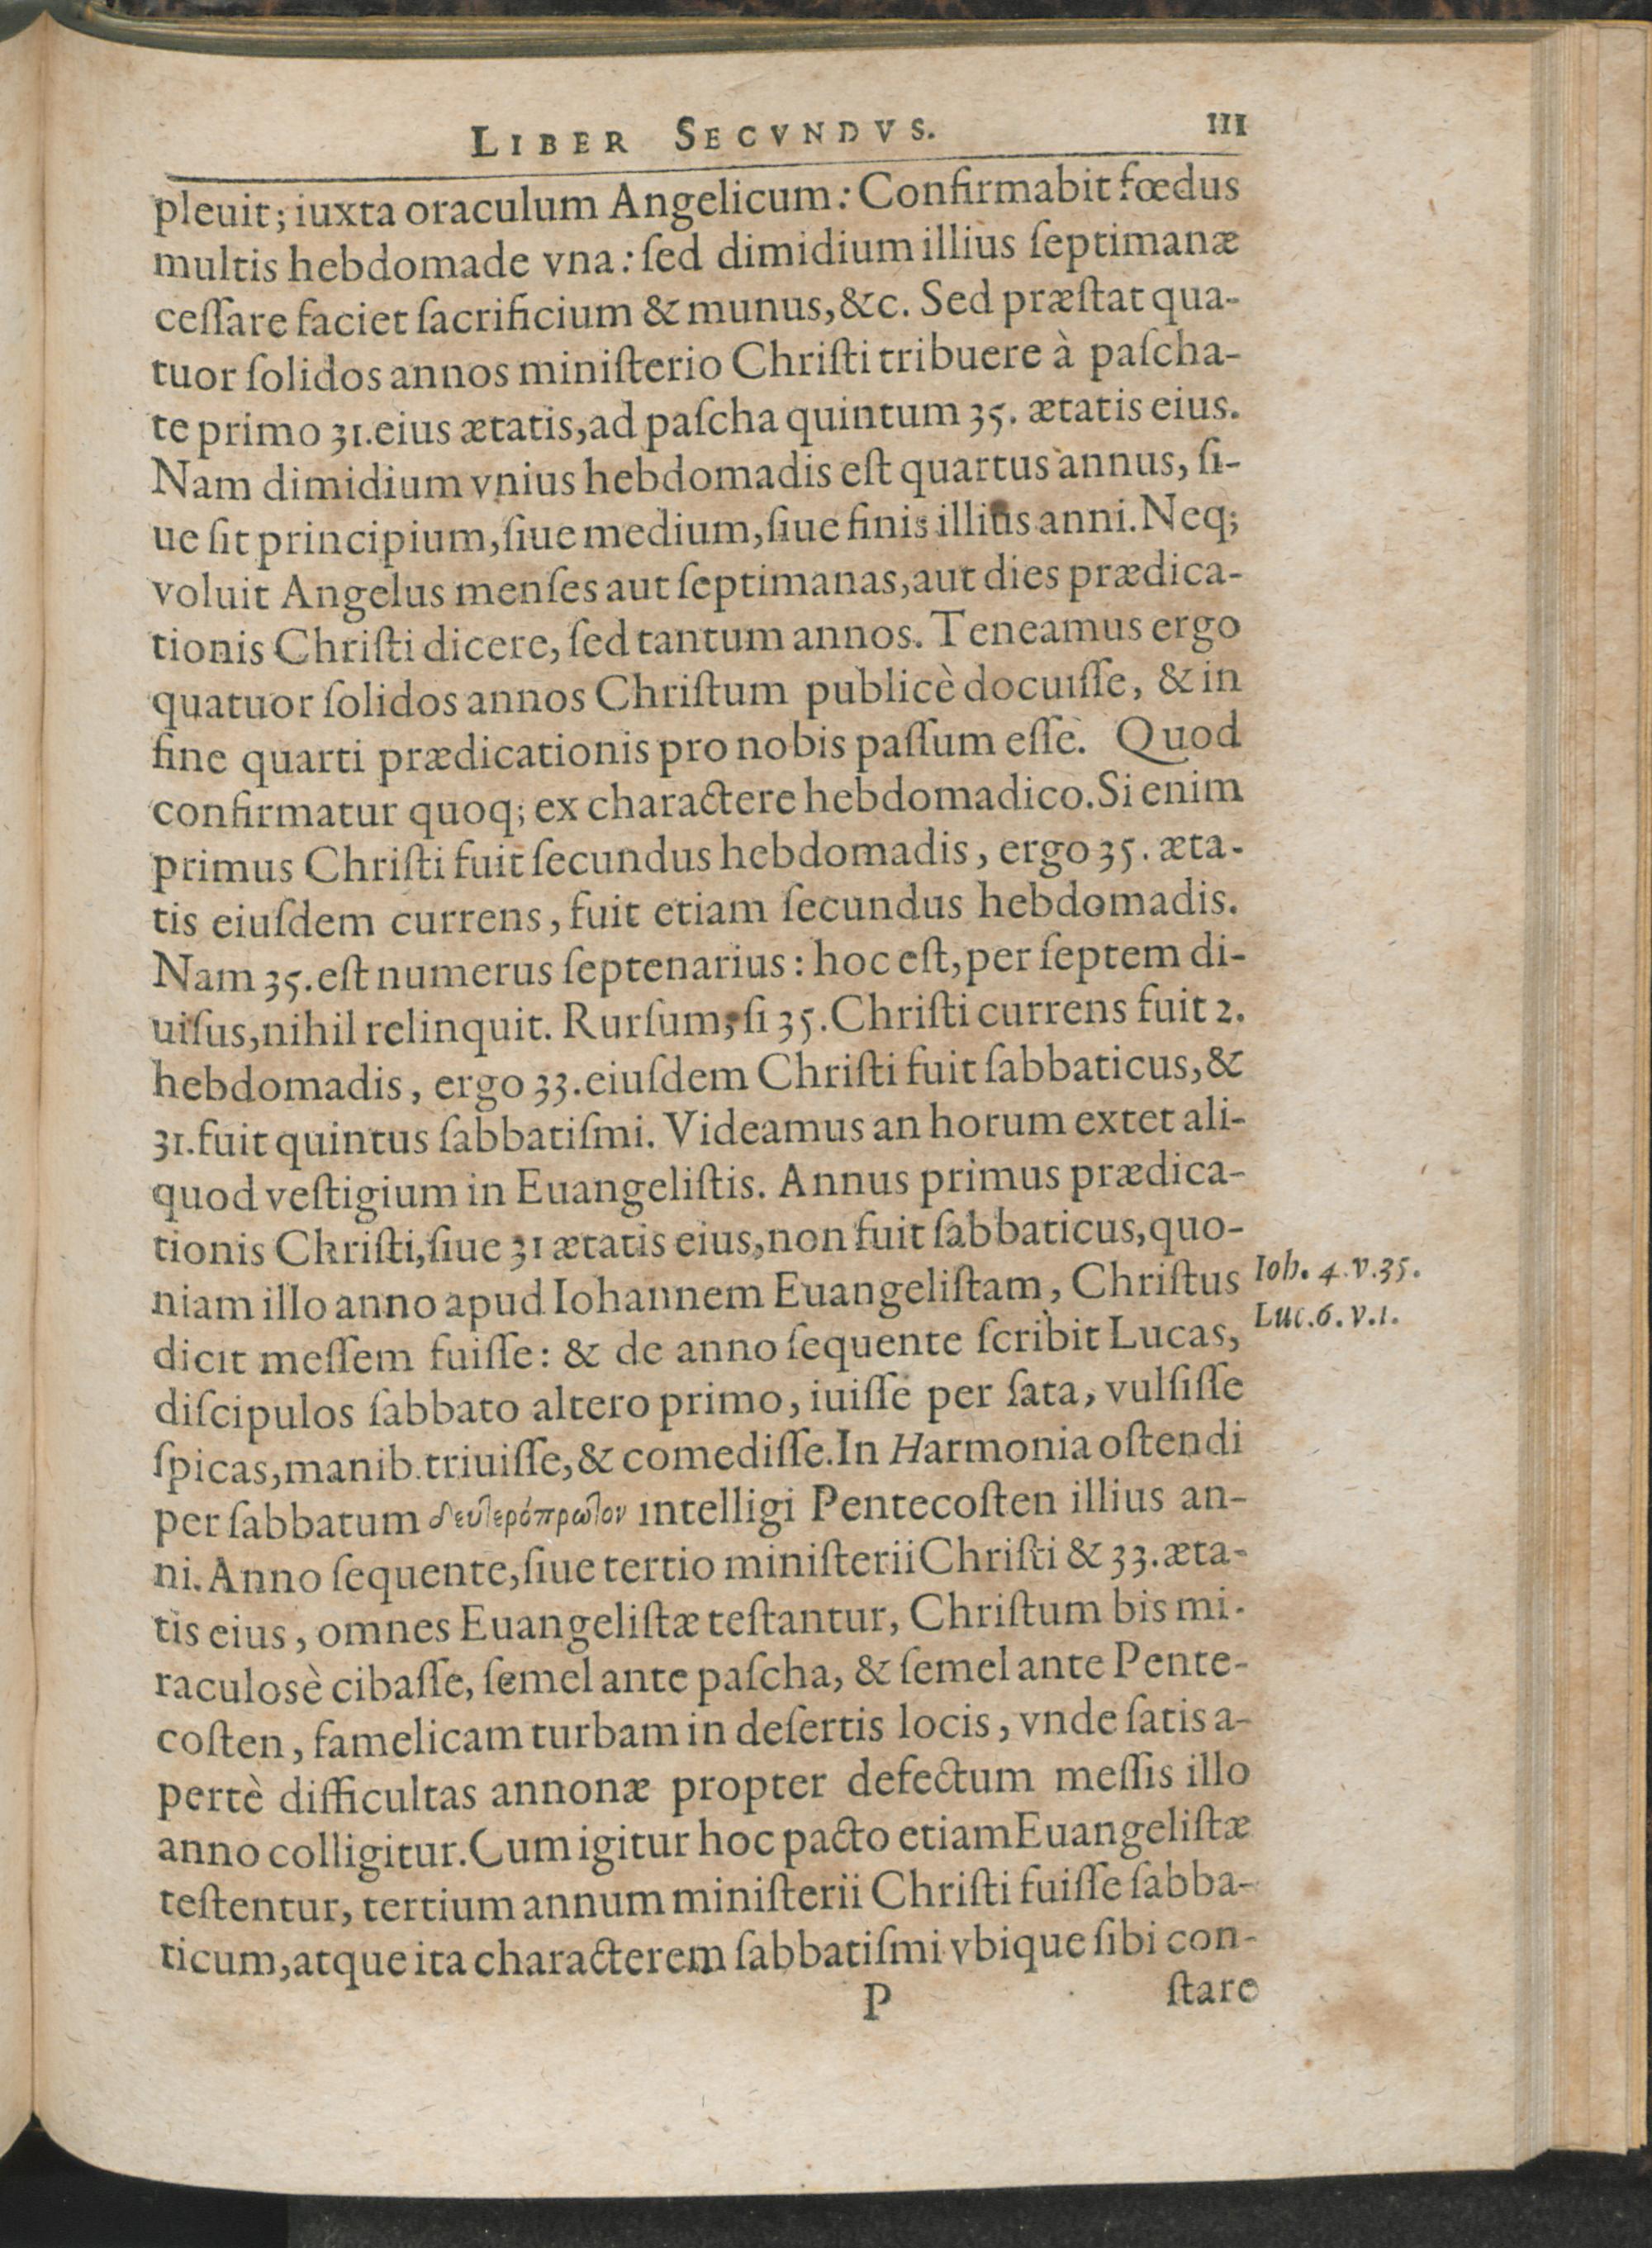 LIBER SECVNDVS. 111
pleuit; iuxta oraculum Angelicum: Confirmabit fœdus
multis hebdomade vna: ſed dimidium illius ſeptimanæ
ceſſare faciet ſacrificium & munus, &c. Sed præſtat qua-
tuor ſolidos annos miniſterio Chriſti tribuere à paſcha-
te primo 31. eius ætatis, ad paſcha quintum 35. ætatis eius.
Nam dimidium vnius hebdomadis eſt quartus annus, ſi-
ue ſit principium, ſiue medium, ſiue finis illius anni. Neq;
voluit Angelus menſes aut ſeptimanas, aut dies prædica-
tionis Chriſti dicere, ſed tantum annos. Teneamus ergo
quatuor ſolidos annos Chriſtum publicè docuiſſe, & in
fine quarti prædicationis pro nobis paſſum eſſe. Quod
confirmatur quoq; ex charactere hebdomadico. Si enim
primus Chriſti fuit ſecundus hebdomadis, ergo 35. æta-
tis eiuſdem currens, fuit etiam ſecundus hebdomadis.
Nam 35. eſt numerus ſeptenarius: hoc eſt, per ſeptem di-
uiſus, nihil relinquit. Rurſum, ſi 35. Chriſti currens fuit 2.
hebdomadis, ergo 33. eiuſdem Chriſti fuit ſabbaticus, &
31. fuit quintus ſabbatiſmi. Videamus an horum extet ali-
quod veſtigium in Euangeliſtis. Annus primus prædica-
tionis Chriſti, ſiue 31 ætatis eius, non fuit ſabbaticus, quo-
niam illo anno apud Iohannem Euangeliſtam, Chriſtus
Ioh. 4. v. 35.
dicit meſſem fuiſſe: & de anno ſequente ſcribit Lucas,
Luc. 6. v. 1.
diſcipulos ſabbato altero primo, iuiſſe per ſata, vulſiſſe
ſpicas, manib. triuiſſe, & comediſſe. In Harmonia oſtendi
per ſabbatum δευτερόπρωτον intelligi Pentecoſten illius an-
ni. Anno ſequente, ſiue tertio miniſterii Chriſti & 33. æta-
tis eius, omnes Euangeliſtæ teſtantur, Chriſtum bis mi-
raculosè cibaſſe, ſemel ante paſcha, & ſemel ante Pente-
coſten, famelicam turbam in deſertis locis, vnde ſatis a-
pertè difficultas annonæ propter defectum meſſis illo
anno colligitur. Cum igitur hoc pacto etiam Euangeliſtæ
teſtentur, tertium annum miniſterii Chriſti fuiſſe ſabba-
ticum, atque ita characterem ſabbatiſmi vbique ſibi con-
P ſtare